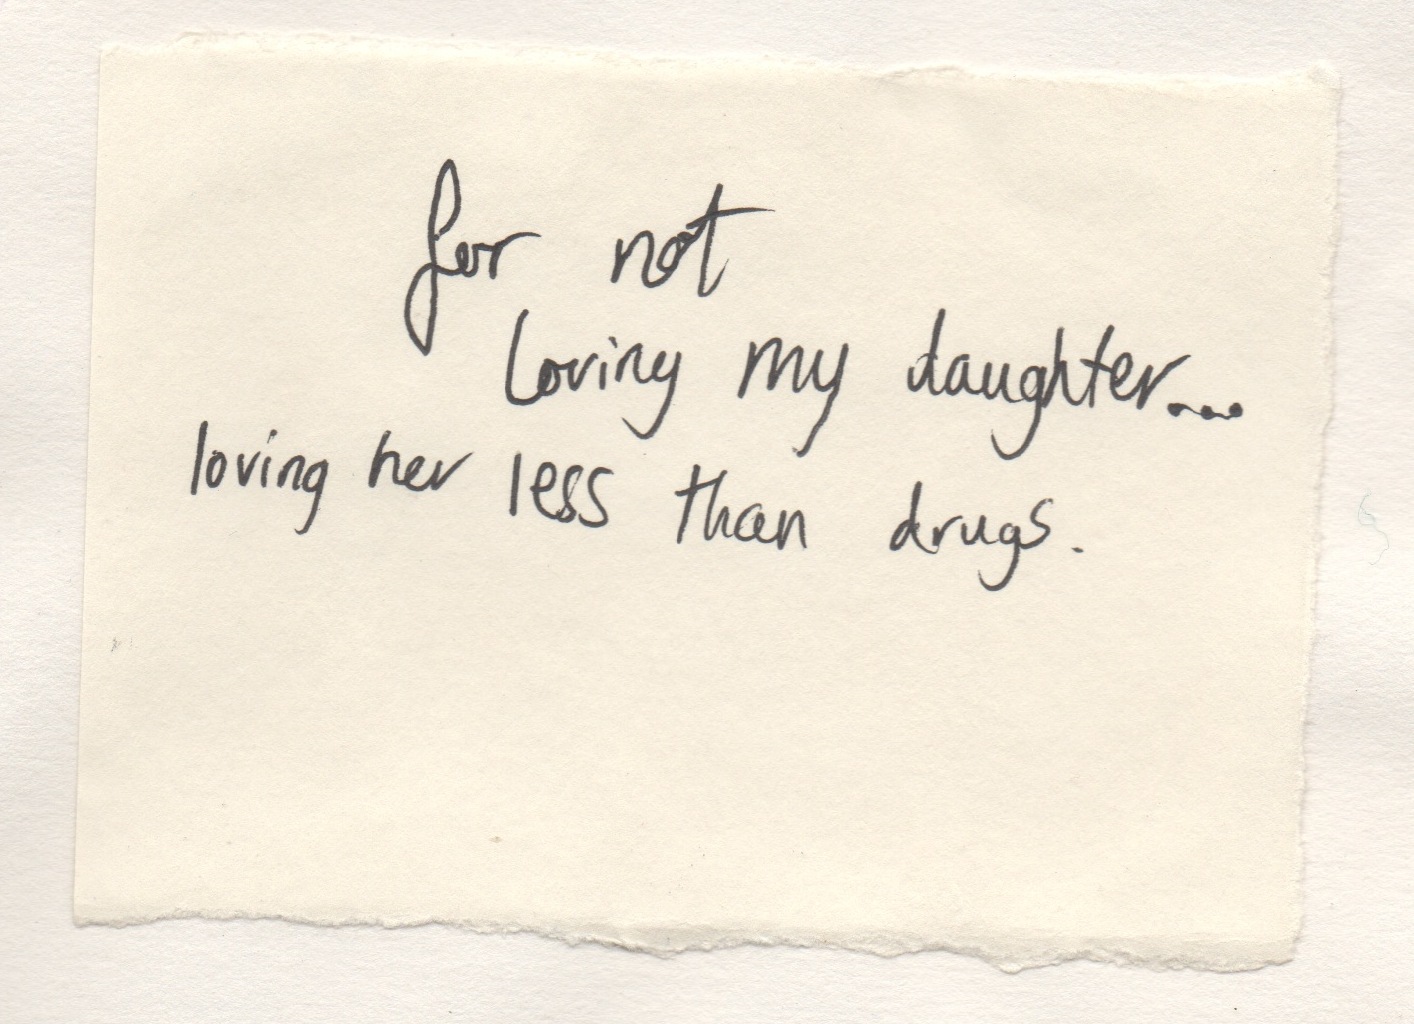 for not
loving my daughter...
loving her less than drugs.